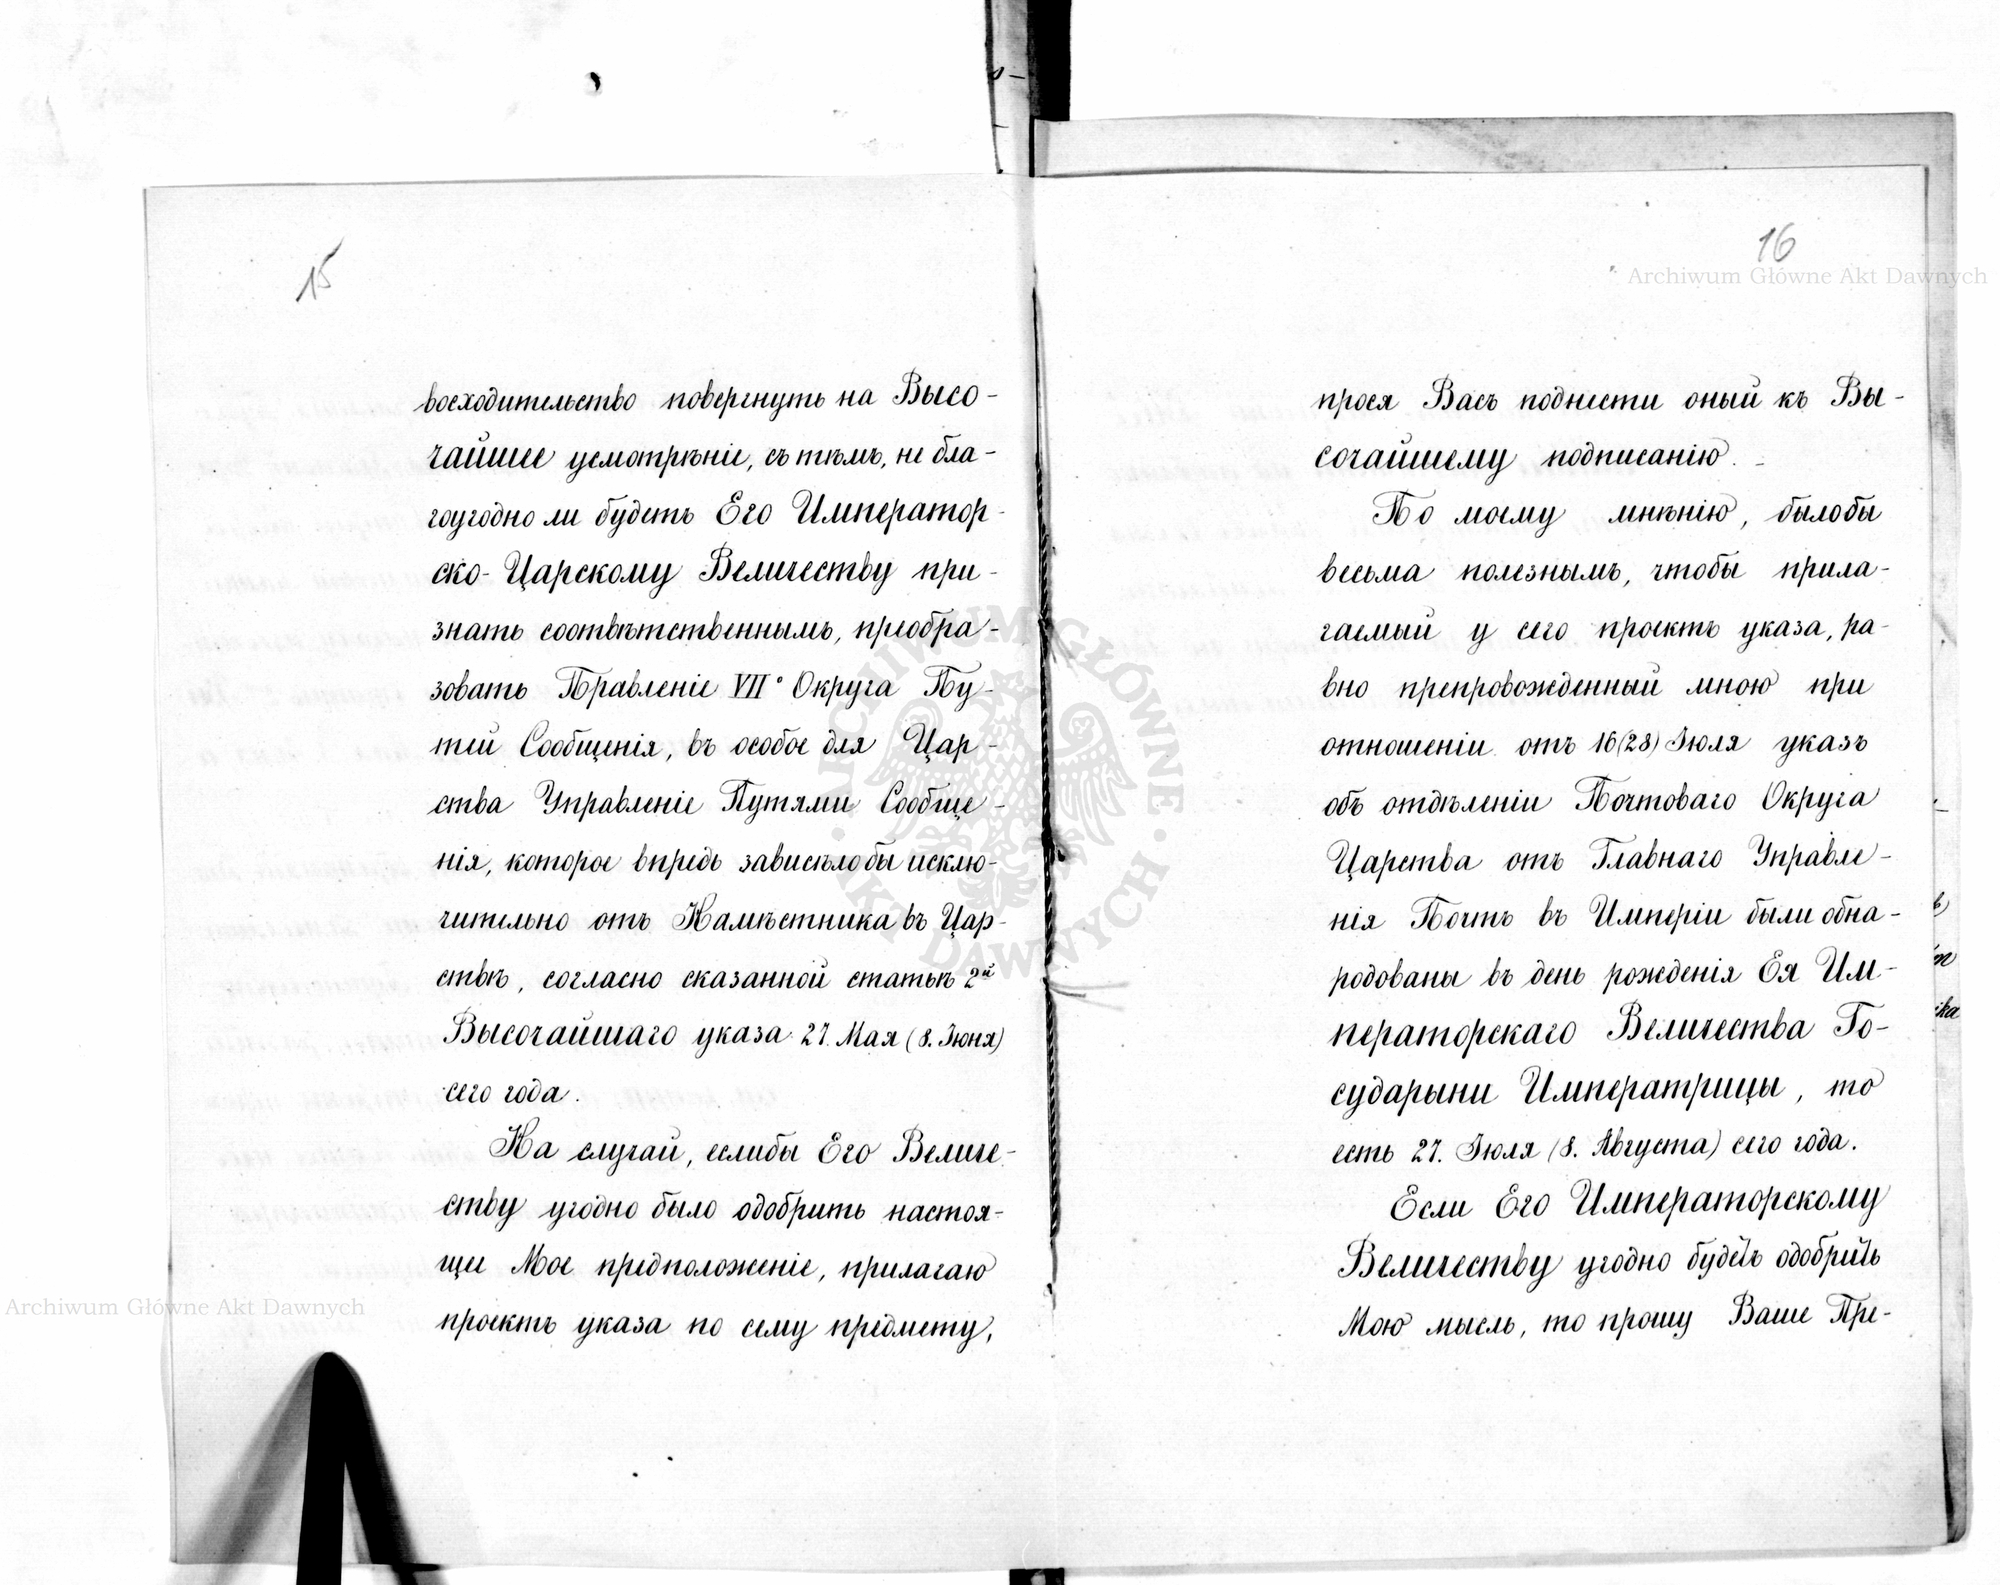 15
восходительство повергнуть на Высо-
чайшее усмотрѣніе, съ тѣмъ, не бла-
гоугодно ли будетъ Его Император-
ско-Царскому Величеству при-
знать соотвѣтственнымъ, преобра-
зовать Правленіе VII° Округа Пу-
тей Сообщенія, въ особое для Цар-
ства Управленіе Путями Сообще-
нія, которое впредь зависѣло бы исклю-
чительно отъ Намѣстника въ Цар-
ствѣ, согласно сказанной статьѣ 2й
Высочайшаго указа 27. Мая (8. Іюня)
сего года.
На случай, еслибы Его Величе-
ству угодно было одобрить настоя-
щее Мое предположеніе, прилагаю
проектъ указа по сему предмету,
16
прося Васъ поднести оный къ Вы-
сочайшему подписанію.
По моему мнѣнію, было бы
весьма полезнымъ, чтобы прила-
гаемый у сего проектъ указа, ра-
вно препровожденный мною при
отношеніи отъ 16(28) Іюля указъ
объ отдѣленіи Почтоваго Округа
Царства отъ Главнаго Управле-
нія Почтъ въ Имперіи были обна-
родованы въ день рожденія Ея Им-
ператорскаго Величества Го-
сударыни Императрицы, то
есть 27. Іюля (8. Августа) сего года.
Если Его Императорскому
Величеству угодно будетъ одобрить
Мою мысль, то прошу Ваше Пре-
Archiwum Główne Akt Dawnych
Archiwum Główne Akt Dawnych
ARCHIWUM GŁÓWNE
AKT DAWNYCH